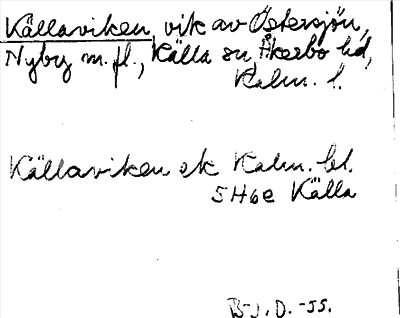 Källaviken, vik av Östersjön,
Nyby m. fl., Källa sn, Åkerbo hd,
Kalm. l.
Källaviken ek Kalm. bl.
5H6e Källa
B-J. D. -55.